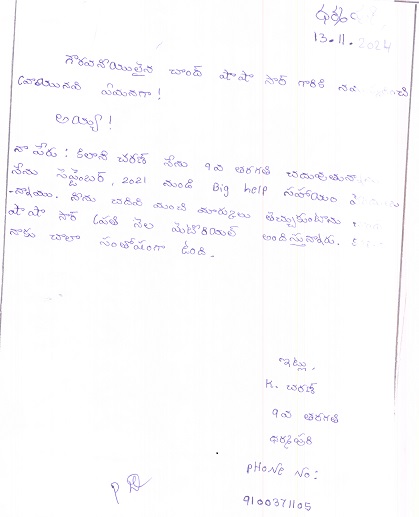 ధర్మ
13.11.2024
గౌరవనీయులైన చాంద్ పాషా సార్ గారికి నమ
వ్రాయునది ఏమనగా!
అయ్యా!
నా పేరు: కళాశీ చరణ్ నేను 9వ తరగతి చదువుతున్నా
నేను సెప్టెంబర్, 2021 నుండి Big help సహాయం
-న్నాను. నేను చదివి మంచి మార్కులు తెచ్చుకుంటాను
పాషా సార్ ప్రతి నెల మెటీరియల్ అందిస్తున్నారు.
నాకు చాలా సంతోషంగా ఉంది.
ఇట్లు,
K. చరణ్
9వ తరగతి
ధర్మపురి
PHONE NO:
9100371105